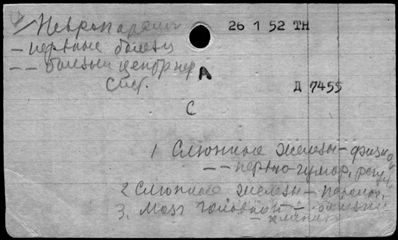 Невропа
26 1 52 ТН
– нервные болезн
– – болезни центр нер
сис.
А
Д 7455
С
1 Слюнные железы – физио
– – нервно-гумор. регул
2 Слюнные железы – патолог
3. Мозг головной – болезни